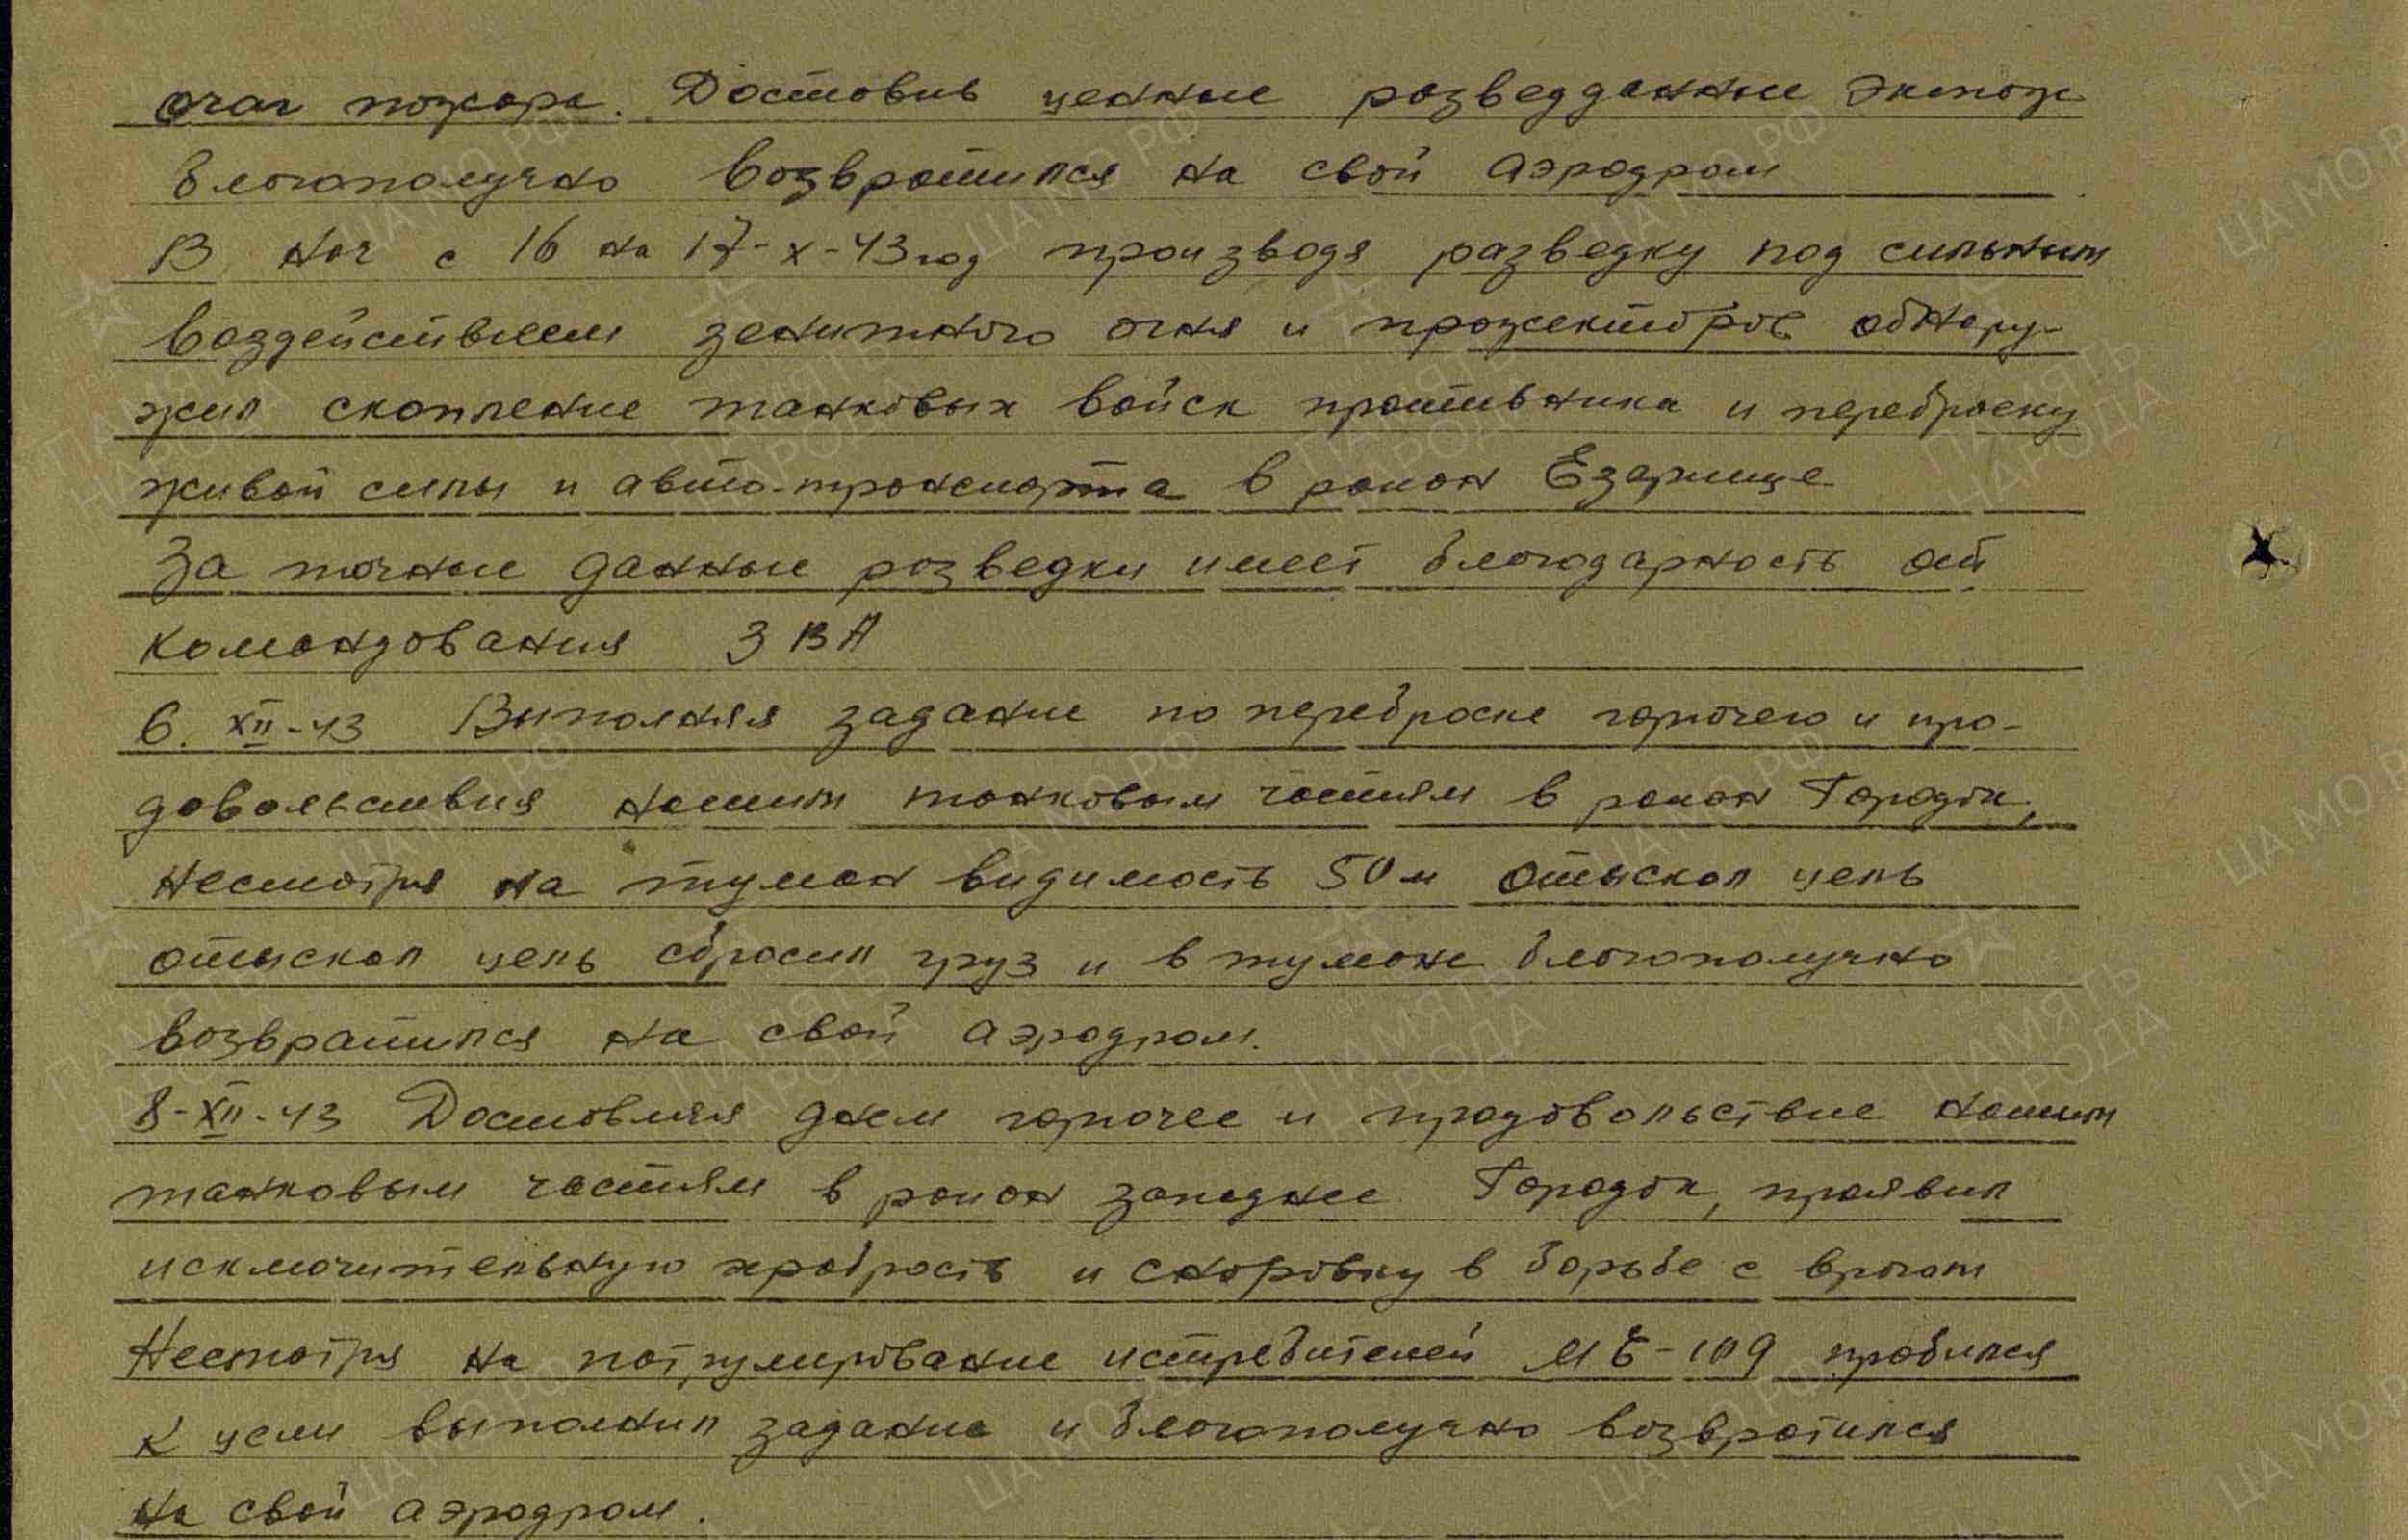 очаг пожара. Доставив ценные разведданные экипаж
благополучно возвратился на свой аэродром
В ноч с 16 на 17-X-43 год производя разведку под сильным
воздействием зенитного огня и прожекторов обнару-
жил скопление танковых войск противника и переброску
живой силы и авто-транспорта в район Езарище
За точные данные разведки имеет благодарность от
командования 3 ВА
6. XII-43 Выполняя задание по переброске горючего и про-
довольствия нашим танковым частям в район Городок,
несмотря на туман видимость 50 м отыскал цель
отыскал цель сбросил груз и в тумане благополучно
возвратился на свой аэродром.
8-XII-43 Доставляя днем горючее и продовольствие нашим
танковым частям в район западнее Городок, проявил
исключительную храбрость и сноровку в борьбе с врагом
Несмотря на патрулирование истребителей МЕ-109 пробился
к цели выполнил задание и благополучно возвратился
на свой аэродром.
ЦА МО РФ
ПАМЯТЬ НАРОДА